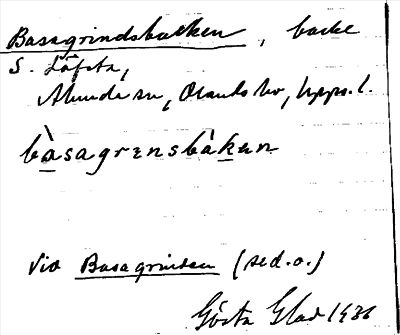 Basagrindsbacken, backe
S. Löfsta,
Alunda sn, Olands hd, Upps. l.
bàsagrɛnsbàkən
Vid Basagrinden (se d. o.)
Gösta Glad 1936